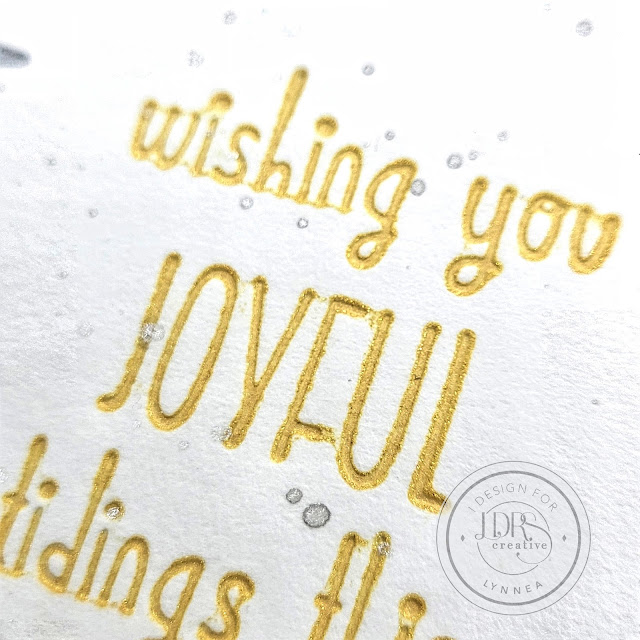 wishing you
JOYFUL
tidings
I DESIGN FOR
JDR
creative
LYNNEA